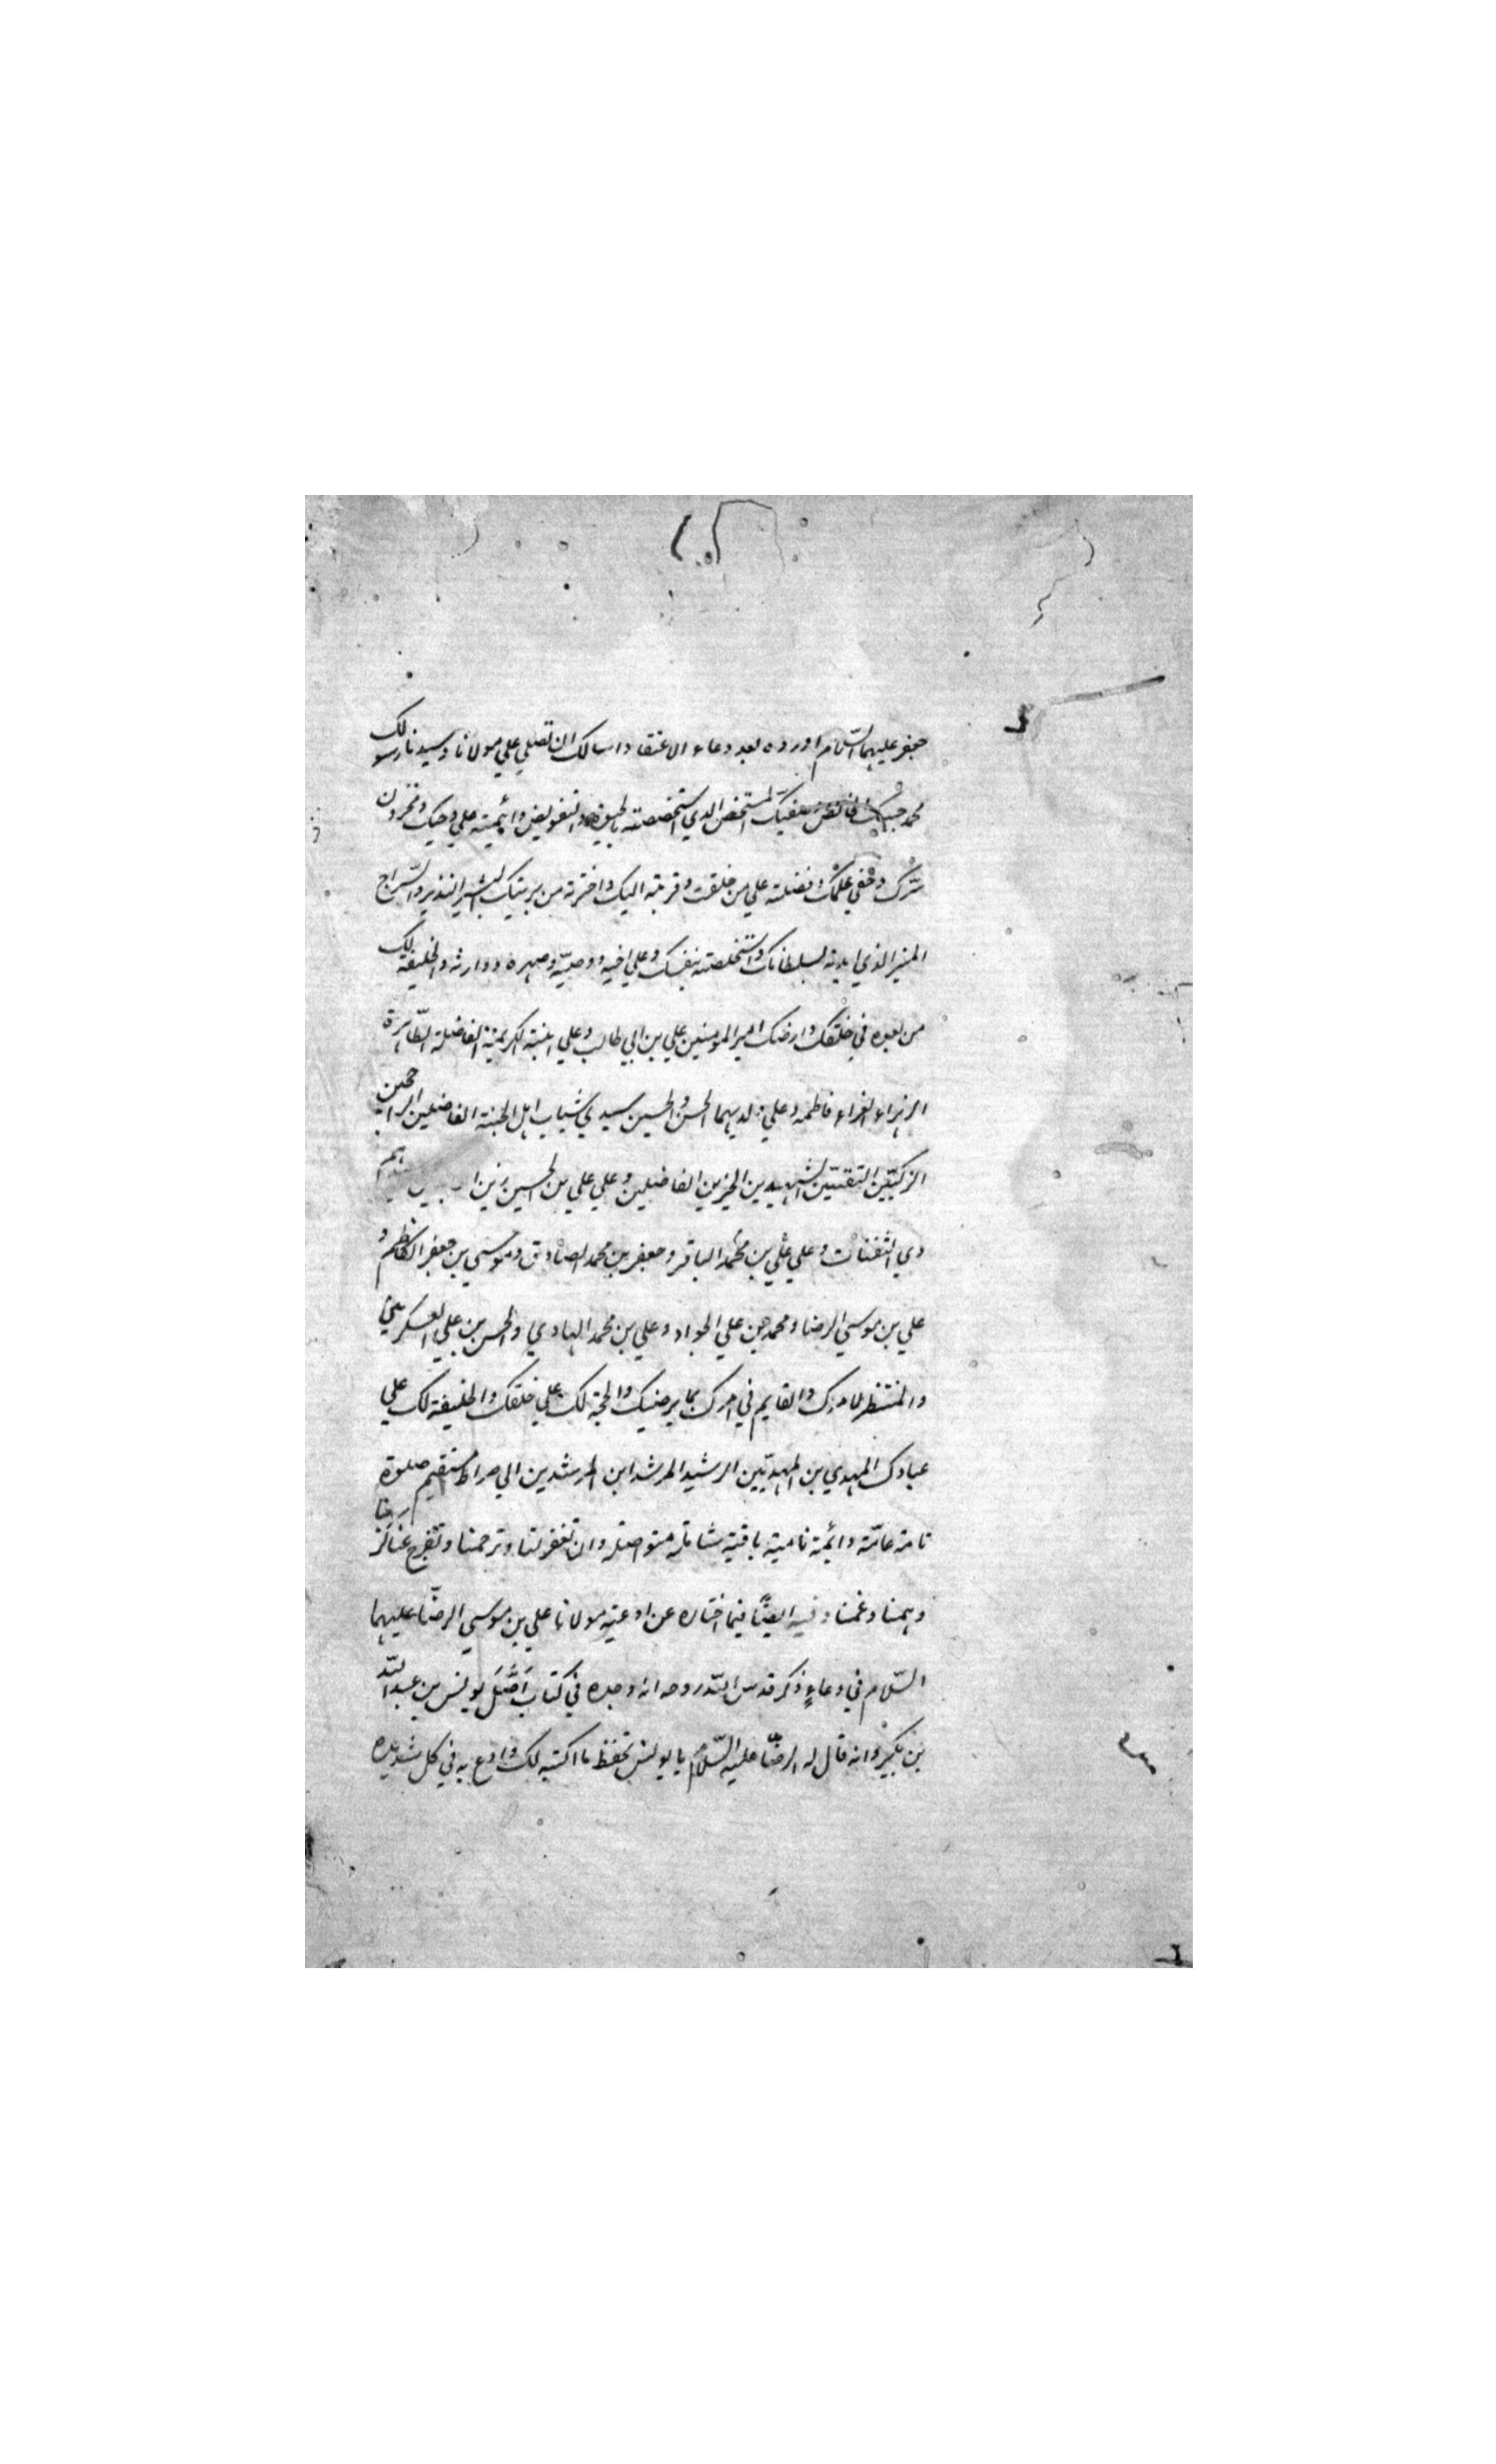 جعفر عليهما السّلام اورده بعد دعاء الاعتقاد واسالك ان تصلي علي مولانا وسيدنا رسولك
محمد حبيبك الخالص وصفيّك المستخص الذي استخصصته بالحيوة والتفويض وائتمنته علي وحيك ومخزون
سّرك وخفي علمك وفضلته علي من خلقت وقربته اليك واخترته من بريتك البشير النذير والسّراج
المنير الذي ايدته بسلطانك واستخلصته لنفسك وعلي اخيه ووصيّه وصهره ووارثه والخليفة لك
من بعده في خلقك وارضك امير المومنين علي بن ابي طالب وعلي ابنته الكريمة الفاضلة الطّاهرة
الزهراء الغراء فاطمه وعلي ولديهما الحسن والحسين سيدي شباب اهل الجنة الفاضلين الراجحين
الزكيّين التقيّين الشهيدين الخيرين الفاضلين وعلي علي بن الحسين زين
ذي الثفنات وعلي علي بن محمد الباقر وجعفر بن محمد الصادق وموسي بن جعفر الكاظم و
علي بن موسي الرضا ومحمد بن علي الجواد وعلي بن محمد الهادي والحسن بن علي العسكريين
والمنتظر لامرك والقايم في امرك بما يرضيك والحجة لك علي خلقك والخليفة لك علي
عبادك المهدي بن المهديّين الرشيد المرشد ابن المرشدين الي صراط مستقيم صلوة
تامة عامّة دائمة نامية باقية شاملة متواصلة وان تغفر لنا وترحمنا وتفرج عنا كربنا
وهمنا وغمنا وفيه ايضًا فيما اختاره عن ادعية مولانا علي بن موسي الرضّا عليهما
السّلام في دعاءٍ ذكر قدس اللّه روحه انه وجده في كتاب اصَّل يونس بن عبد اللّه
بن بكير وانه قال له الرضّا عليه السّلام يا يونس تحفظ ما اكتبه لك وادع به في كل شديده